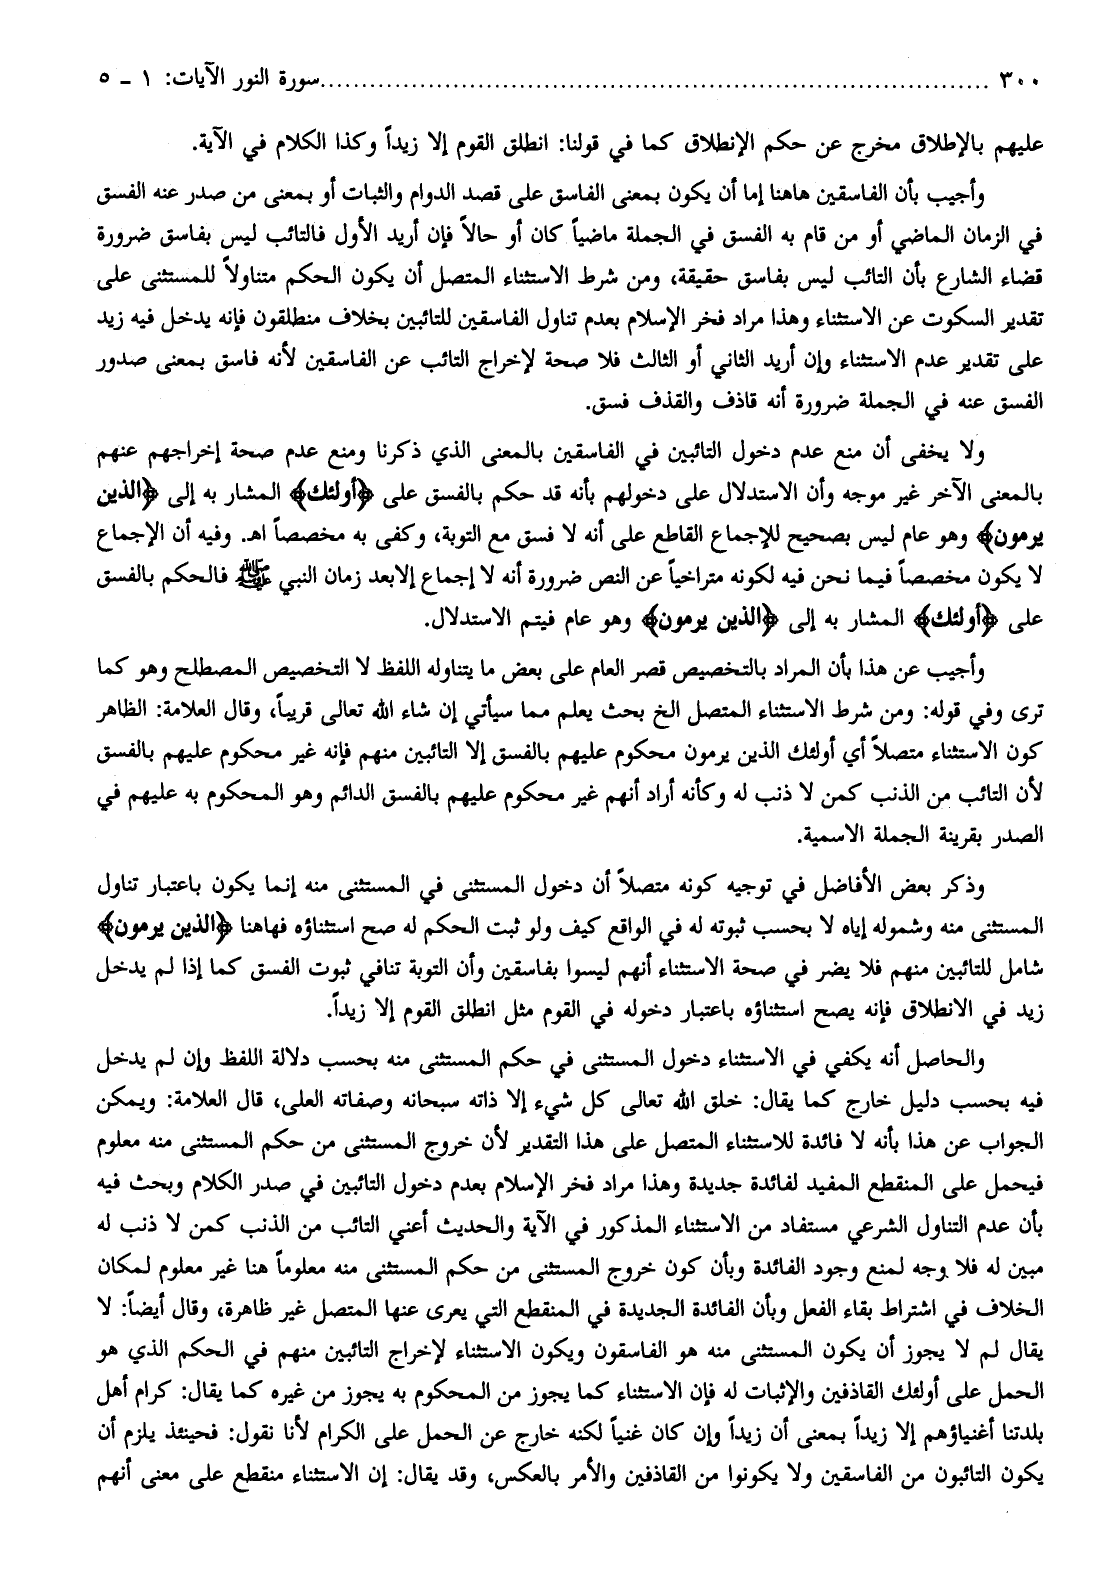 ٣٠٠ ........................................................................ سورة النور الآيات: ١ ـ ٥
عليهم بالإطلاق مخرج عن حكم الإنطلاق كما في قولنا: انطلق القوم إلا زيداً وكذا الكلام في الآية.
وأجيب بأن الفاسقين هاهنا إما أن يكون بمعنى الفاسق على قصد الدوام والثبات أو بمعنى من صدر عنه الفسق
في الزمان الماضي أو من قام به الفسق في الجملة ماضياً كان أو حالاً فإن أريد الأول فالتائب ليس بفاسق ضرورة
قضاء الشارع بأن التائب ليس بفاسق حقيقة، ومن شرط الاستثناء المتصل أن يكون الحكم متناولاً للمستثنى على
تقدير السكوت عن الاستثناء وهذا مراد فخر الإسلام بعدم تناول الفاسقين للتائبين بخلاف منطلقون فإنه يدخل فيه زيد
على تقدير عدم الاستثناء وإن أريد الثاني أو الثالث فلا صحة لإخراج التائب عن الفاسقين لأنه فاسق بمعنى صدور
الفسق عنه في الجملة ضرورة أنه قاذف والقذف فسق.
ولا يخفى أن منع عدم دخول التائبين في الفاسقين بالمعنى الذي ذكرنا ومنع عدم صحة إخراجهم عنهم
بالمعنى الآخر غير موجه وأن الاستدلال على دخولهم بأنه قد حكم بالفسق على ﴿أولئك﴾ المشار به إلى ﴿الذين
يرمون﴾ وهو عام ليس بصحيح للإجماع القاطع على أنه لا فسق مع التوبة، وكفى به مخصصاً اهـ. وفيه أن الإجماع
لا يكون مخصصاً فيما نحن فيه لكونه متراخياً عن النص ضرورة أنه لا إجماع إلابعد زمان النبي ﷺ فالحكم بالفسق
على ﴿أولئك﴾ المشار به إلى ﴿الذين يرمون﴾ وهو عام فيتم الاستدلال.
وأجيب عن هذا بأن المراد بالتخصيص قصر العام على بعض ما يتناوله اللفظ لا التخصيص المصطلح وهو كما
ترى وفي قوله: ومن شرط الاستثناء المتصل الخ بحث يعلم مما سيأتي إن شاء الله تعالى قريباً، وقال العلامة: الظاهر
كون الاستثناء متصلاً أي أولئك الذين يرمون محكوم عليهم بالفسق إلا التائبين منهم فإنه غير محكوم عليهم بالفسق
لأن التائب من الذنب كمن لا ذنب له وكأنه أراد أنهم غير محكوم عليهم بالفسق الدائم وهو المحكوم به عليهم في
الصدر بقرينة الجملة الاسمية.
وذكر بعض الأفاضل في توجيه كونه متصلاً أن دخول المستثنى في المستثنى منه إنما يكون باعتبار تناول
المستثنى منه وشموله إياه لا بحسب ثبوته له في الواقع كيف ولو ثبت الحكم له صح استثناؤه فهاهنا ﴿الذين يرمون﴾
شامل للتائبين منهم فلا يضر في صحة الاستثناء أنهم ليسوا بفاسقين وأن التوبة تنافي ثبوت الفسق كما إذا لم يدخل
زيد في الانطلاق فإنه يصح استثناؤه باعتبار دخوله في القوم مثل انطلق القوم إلا زيداً.
والحاصل أنه يكفي في الاستثناء دخول المستثنى في حكم المستثنى منه بحسب دلالة اللفظ وإن لم يدخل
فيه بحسب دليل خارج كما يقال: خلق الله تعالى كل شيء إلا ذاته سبحانه وصفاته العلى، قال العلامة: ويمكن
الجواب عن هذا بأنه لا فائدة للاستثناء المتصل على هذا التقدير لأن خروج المستثنى من حكم المستثنى منه معلوم
فيحمل على المنقطع المفيد لفائدة جديدة وهذا مراد فخر الإسلام بعدم دخول التائبين في صدر الكلام وبحث فيه
بأن عدم التناول الشرعي مستفاد من الاستثناء المذكور في الآية والحديث أعني التائب من الذنب كمن لا ذنب له
مبين له فلا وجه لمنع وجود الفائدة وبأن كون خروج المستثنى من حكم المستثنى منه معلوماً هنا غير معلوم لمكان
الخلاف في اشتراط بقاء الفعل وبأن الفائدة الجديدة في المنقطع التي يعرى عنها المتصل غير ظاهرة، وقال أيضاً: لا
يقال لم لا يجوز أن يكون المستثنى منه هو الفاسقون ويكون الاستثناء لإخراج التائبين منهم في الحكم الذي هو
الحمل على أولئك القاذفين والإثبات له فإن الاستثناء كما يجوز من المحكوم به يجوز من غيره كما يقال: كرام أهل
بلدتنا أغنياؤهم إلا زيداً بمعنى أن زيداً وإن كان غنياً لكنه خارج عن الحمل على الكرام لأنا نقول: فحينئذ يلزم أن
يكون التائبون من الفاسقين ولا يكونوا من القاذفين والأمر بالعكس، وقد يقال: إن الاستثناء منقطع على معنى أنهم